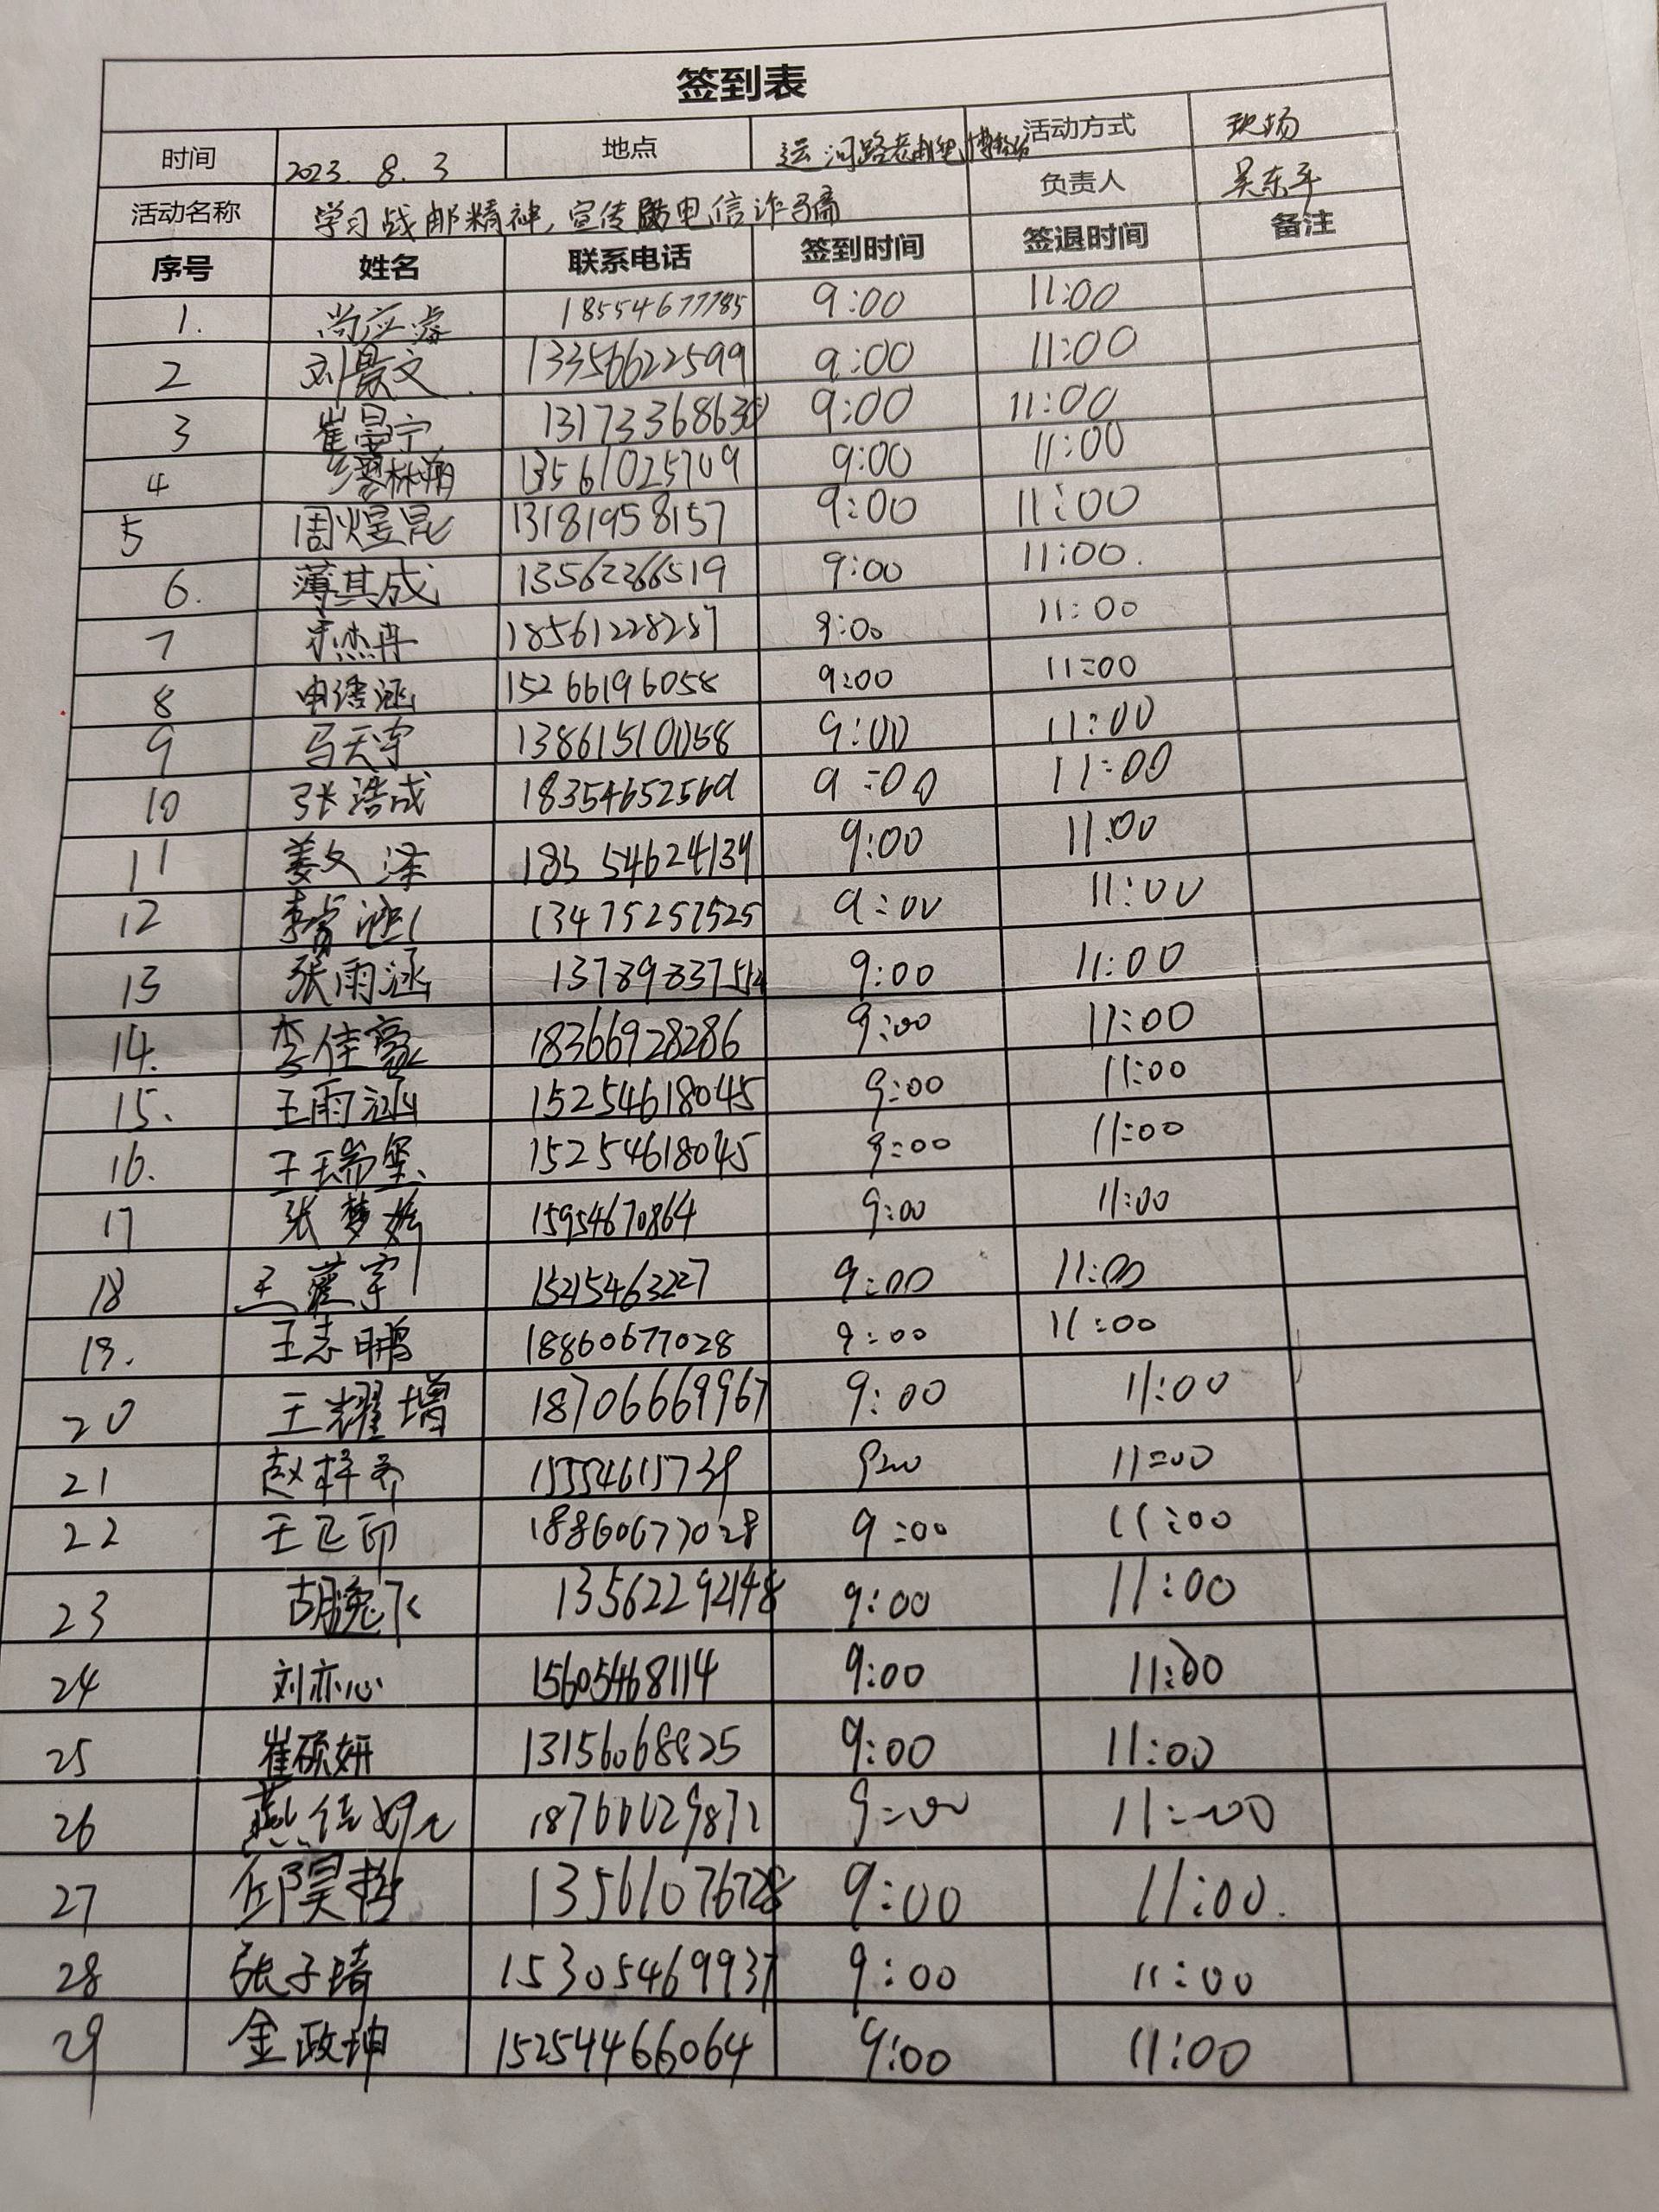 签到表
时间 2023.8.3 地点 运河路老邮电博物馆 活动方式 现场
活动名称 学习战邮精神,宣传防电信诈骗 负责人 吴东平
序号 姓名 联系电话 签到时间 签退时间 备注
1. 尚应睿 18554677785 9:00 11:00
2 刘景文 13356622599 9:00 11:00
3 崔晏宁 1317336863 9:00 11:00
4 缪林翔 13561025709 9:00 11:00
5 周煜昆 13181958157 9:00 11:00
6. 薄其成 13562266519 9:00 11:00.
7 宋杰冉 18561228287 9:00 11:00
8 申译涵 15266196058 9:00 11:00
9 马天宇 13861510058 9:00 11:00
10 张浩成 18354652569 9:00 11:00
11 姜文泽 18554624139 9:00 11:00
12 李睿涵 13475257525 9:00 11:00
13 张雨涵 13789837512 9:00 11:00
14. 李佳豪 18366928286 9:00 11:00
15. 王雨涵 15254618045 9:00 11:00
16. 王瑞玺 15254618045 9:00 11:00
17 张梦娇 15954670864 9:00 11:00
18 王宇 15215463227 9:00 11:00
19. 王志鹏 18860677028 9:00 11:00
20 王耀增 18706669967 9:00 11:00
21 赵梓乔 15554615739 9:00 11:00
22 王卫印 18860677028 9:00 11:00
23 胡逸飞 13562292148 9:00 11:00
24 刘亦心 15605468114 9:00 11:00
25 崔硕妍 13156068825 9:00 11:00
26 燕佳 18766029872 9:00 11:00
27 邱昊哲 13561076728 9:00 11:00.
28 张子琦 15305469937 9:00 11:00
29 金政坤 15254466064 9:00 11:00